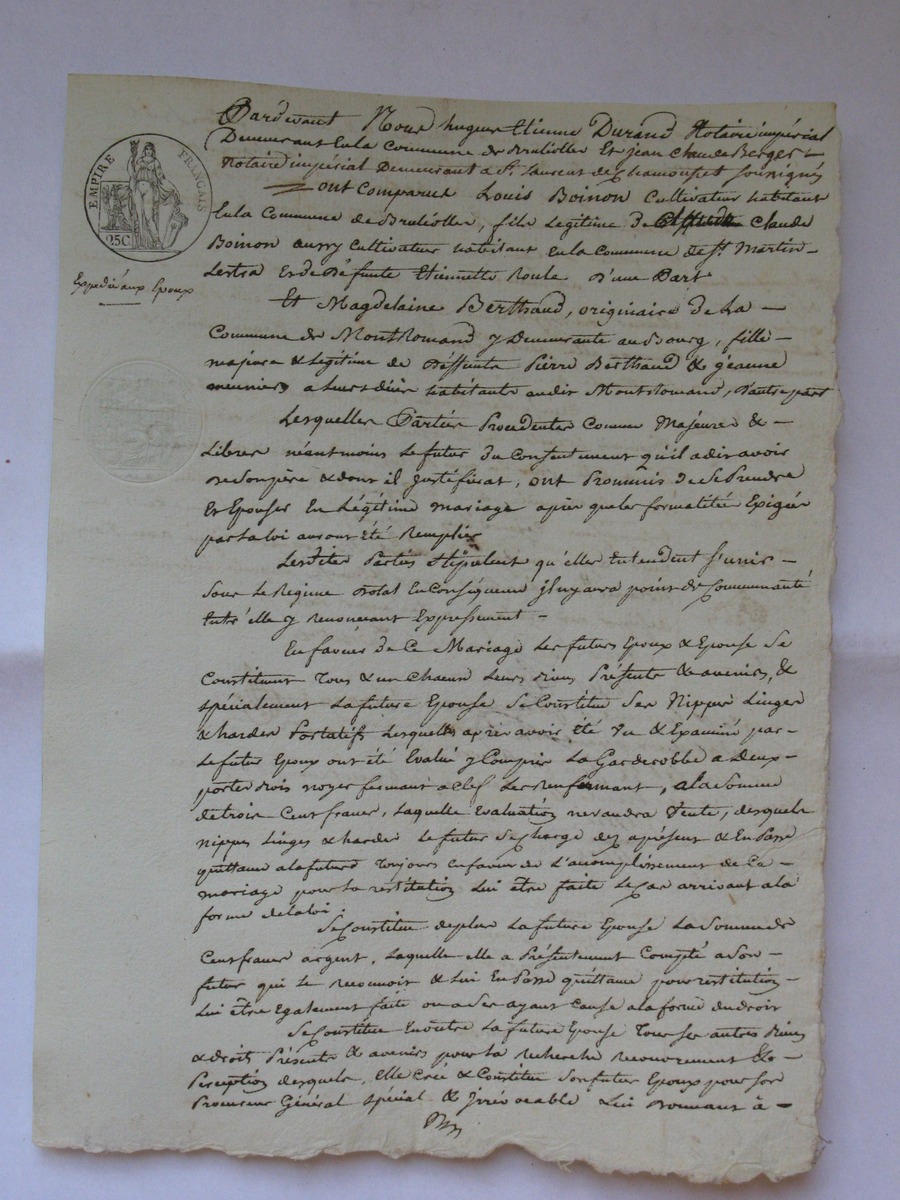 EMPIRE FRANÇAIS
25C
Expédié aux Epoux
Pardevant Nous hugues Etienne Durand Notaire impérial
Demeurant En la Commune de Bruliolles Et jean Claude Berger
Notaire impérial Demeurant a St. Laurent de Chamousset soussignés
ont Comparut Louis Boinon Cultivateur habitant
En la Commune de Brulioller, fils Legitime de Claude
Boinon aussy Cultivateur habitant En la Commune de St. Martin
Lestra Et de Défunte Etiennette Roule D'une Part
Et Magdelaine Berthaud, originaire de La
Commune de Montromand y Demeurante au Bourg, fille
majeure & Légitime de Déffunts Pierre Berthaud & jeanne
meunier a Leurs décès habitants audit Montromand, D'autre part
Lesquelles Parties Procedentes Comme Majeures &
Libres néantmoins Le futur Du Consentement qu'il a dit avoir
De Son père & dont il justifierat, ont Prommis de Se Prendre
Et Epouser En Légitime mariage après que les formalités Exigées
par La loi auront été Remplies
Lesdites Parties Stipulent qu'elles Entendent S'unir
Sous Le Regime Dotal En Conséquence il n'y aura point de Communauté
Entr'elle y Renoncant Expressement
En faveur de Ce Mariage Les futurs Epoux & Epouse Se
Constituent Tous & un Chacun Leurs biens Présents & avenirs, &
spécialement La future Epouse Se Constitue Ses Nippes Linges
& hardes Portatifs Lesquelles après avoir été Vu & Examiné par
Le futur Epoux ont été Evalué y Compris La Garderobbe a Deux
portes bois noyer fermant a Clef Les Renfermant, a La Somme
de trois Cent francs, Laquelle Evaluation ne vaudra Vente, desquels
nippes Linges & hardes Le futur Se Charge dez aprésent & En Passe
quittance a La future Toujours En faveur de L'acomplissement de Ce
mariage pour La restitution Lui être faite Le Cas arrivant a la
forme de la loi.
Se Constitue de plus La future Epouse La Somme de
Cent francs argent, Laquelle elle a Présentement Compté a Son
futur qui Le reconnoit & Lui En Passe quittance pour restitution
Lui être Egalement faite ou a Ses ayant Cause a la forme du droit
Se Constitue En outre La future Epouse Tous Ses autres biens
& droits Présents & avenirs pour La recherche recouvrement &
Perception desquels, Elle Créé & Constitue Son futur Epoux pour Son
Procureur Général spécial & Irrévocable Lui Donnant à